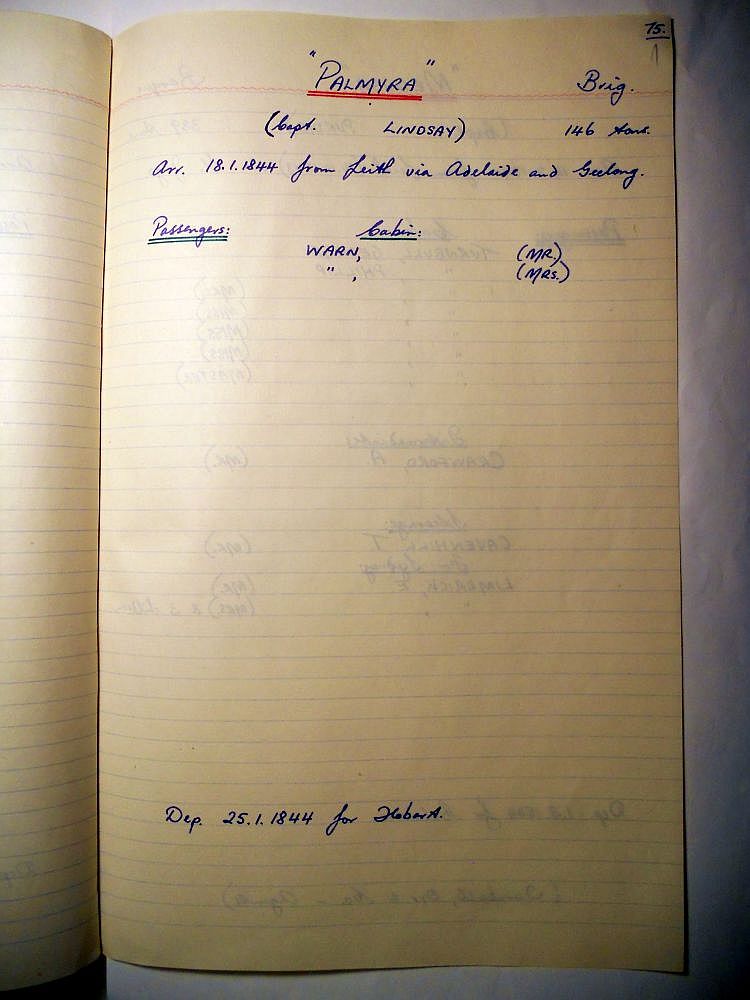 75.
1
"PALMYRA" Brig.
(Capt. LINDSAY) 146 tons.
Arr. 18.1.1844 from Leith via Adelaide and Geelong.
Passengers: Cabin:
WARN, (MR.)
" , (MRS.)
Dep. 25.1.1844 for Hobart.